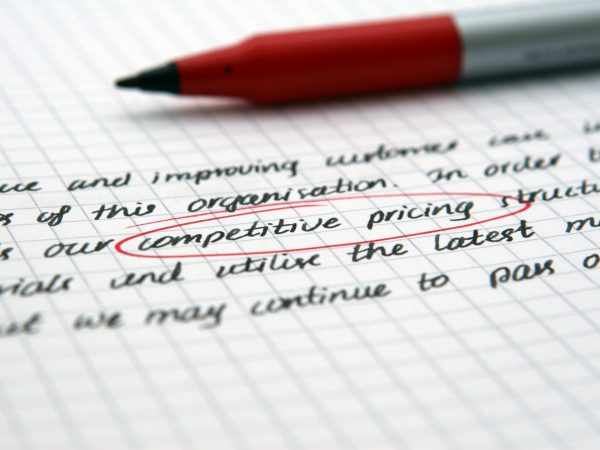 and improving customer care
of this organisation. In order
our competitive pricing
and utilise the latest
we may continue to pass